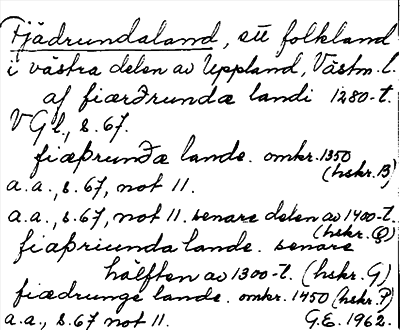 Fjädrundaland, ett folkland
i västra delen av Uppland, Västm. l.
af fiærðrundæ landi 1280-t.
VGl., s. 67.
fiæþrunðæ lande. omkr. 1350
(hskr. B)
a.a., s. 67, not 11.
a.a., s. 67, not 11. senare delen av 1400-t.
(hskr. Q)
fiaþriunda lande. senare
hälften av 1300-t. (hskr. G)
fiædrunge lande. omkr. 1450 (hskr. P)
a.a., s. 67 not 11. G.E. 1962.